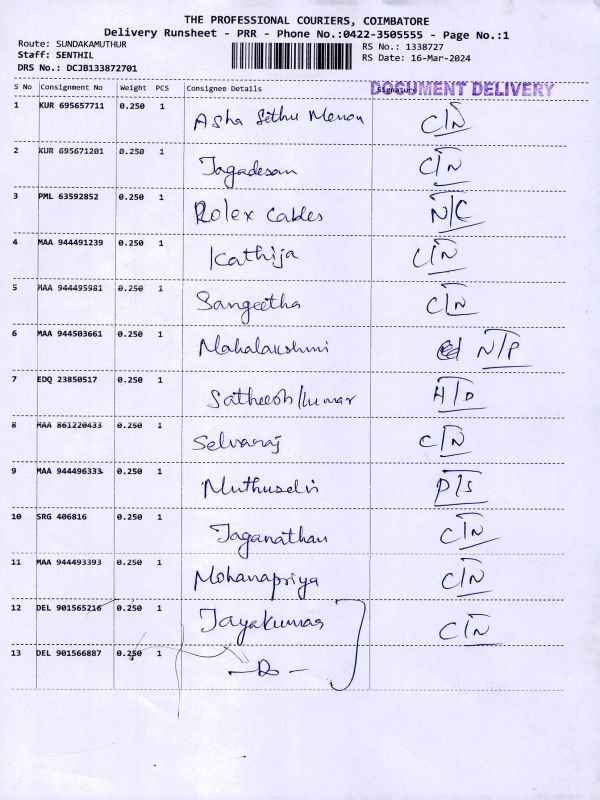 THE PROFESSIONAL COURIERS, COIMBATORE
Delivery Runsheet - PRR - Phone No.:0422-3505555 - Page No.:1
Route: SUNDAKAMUTHUR RS No.: 1338727
Staff: SENTHIL RS Date: 16-Mar-2024
DRS No.: DCJB133872701
S No Consignment No Weight PCS Consignee Details Signature DOCUMENT DELIVERY
1 KUR 695657711 0.250 1 Asha Sethu Menon C/N
2 KUR 695671201 0.250 1 Jagadesan C/N
3 PML 63592852 0.250 1 Rolex Cables N/C
4 MAA 944491239 0.250 1 Kathija C/N
5 MAA 944495981 0.250 1 Sangeetha C/N
6 MAA 944503661 0.250 1 Mahalakshmi N/P
7 EDQ 23850517 0.250 1 Satheesh kumar H/D
8 MAA 861220433 0.250 1 Selvaraj C/N
9 MAA 944496333 0.250 1 Muthuselvi P/S
10 SRG 406816 0.250 1 Jaganathan C/N
11 MAA 944493393 0.250 1 Mohanapriya C/N
12 DEL 901565216 0.250 1 Jayakumar C/N
13 DEL 901566887 0.250 1 -Do-